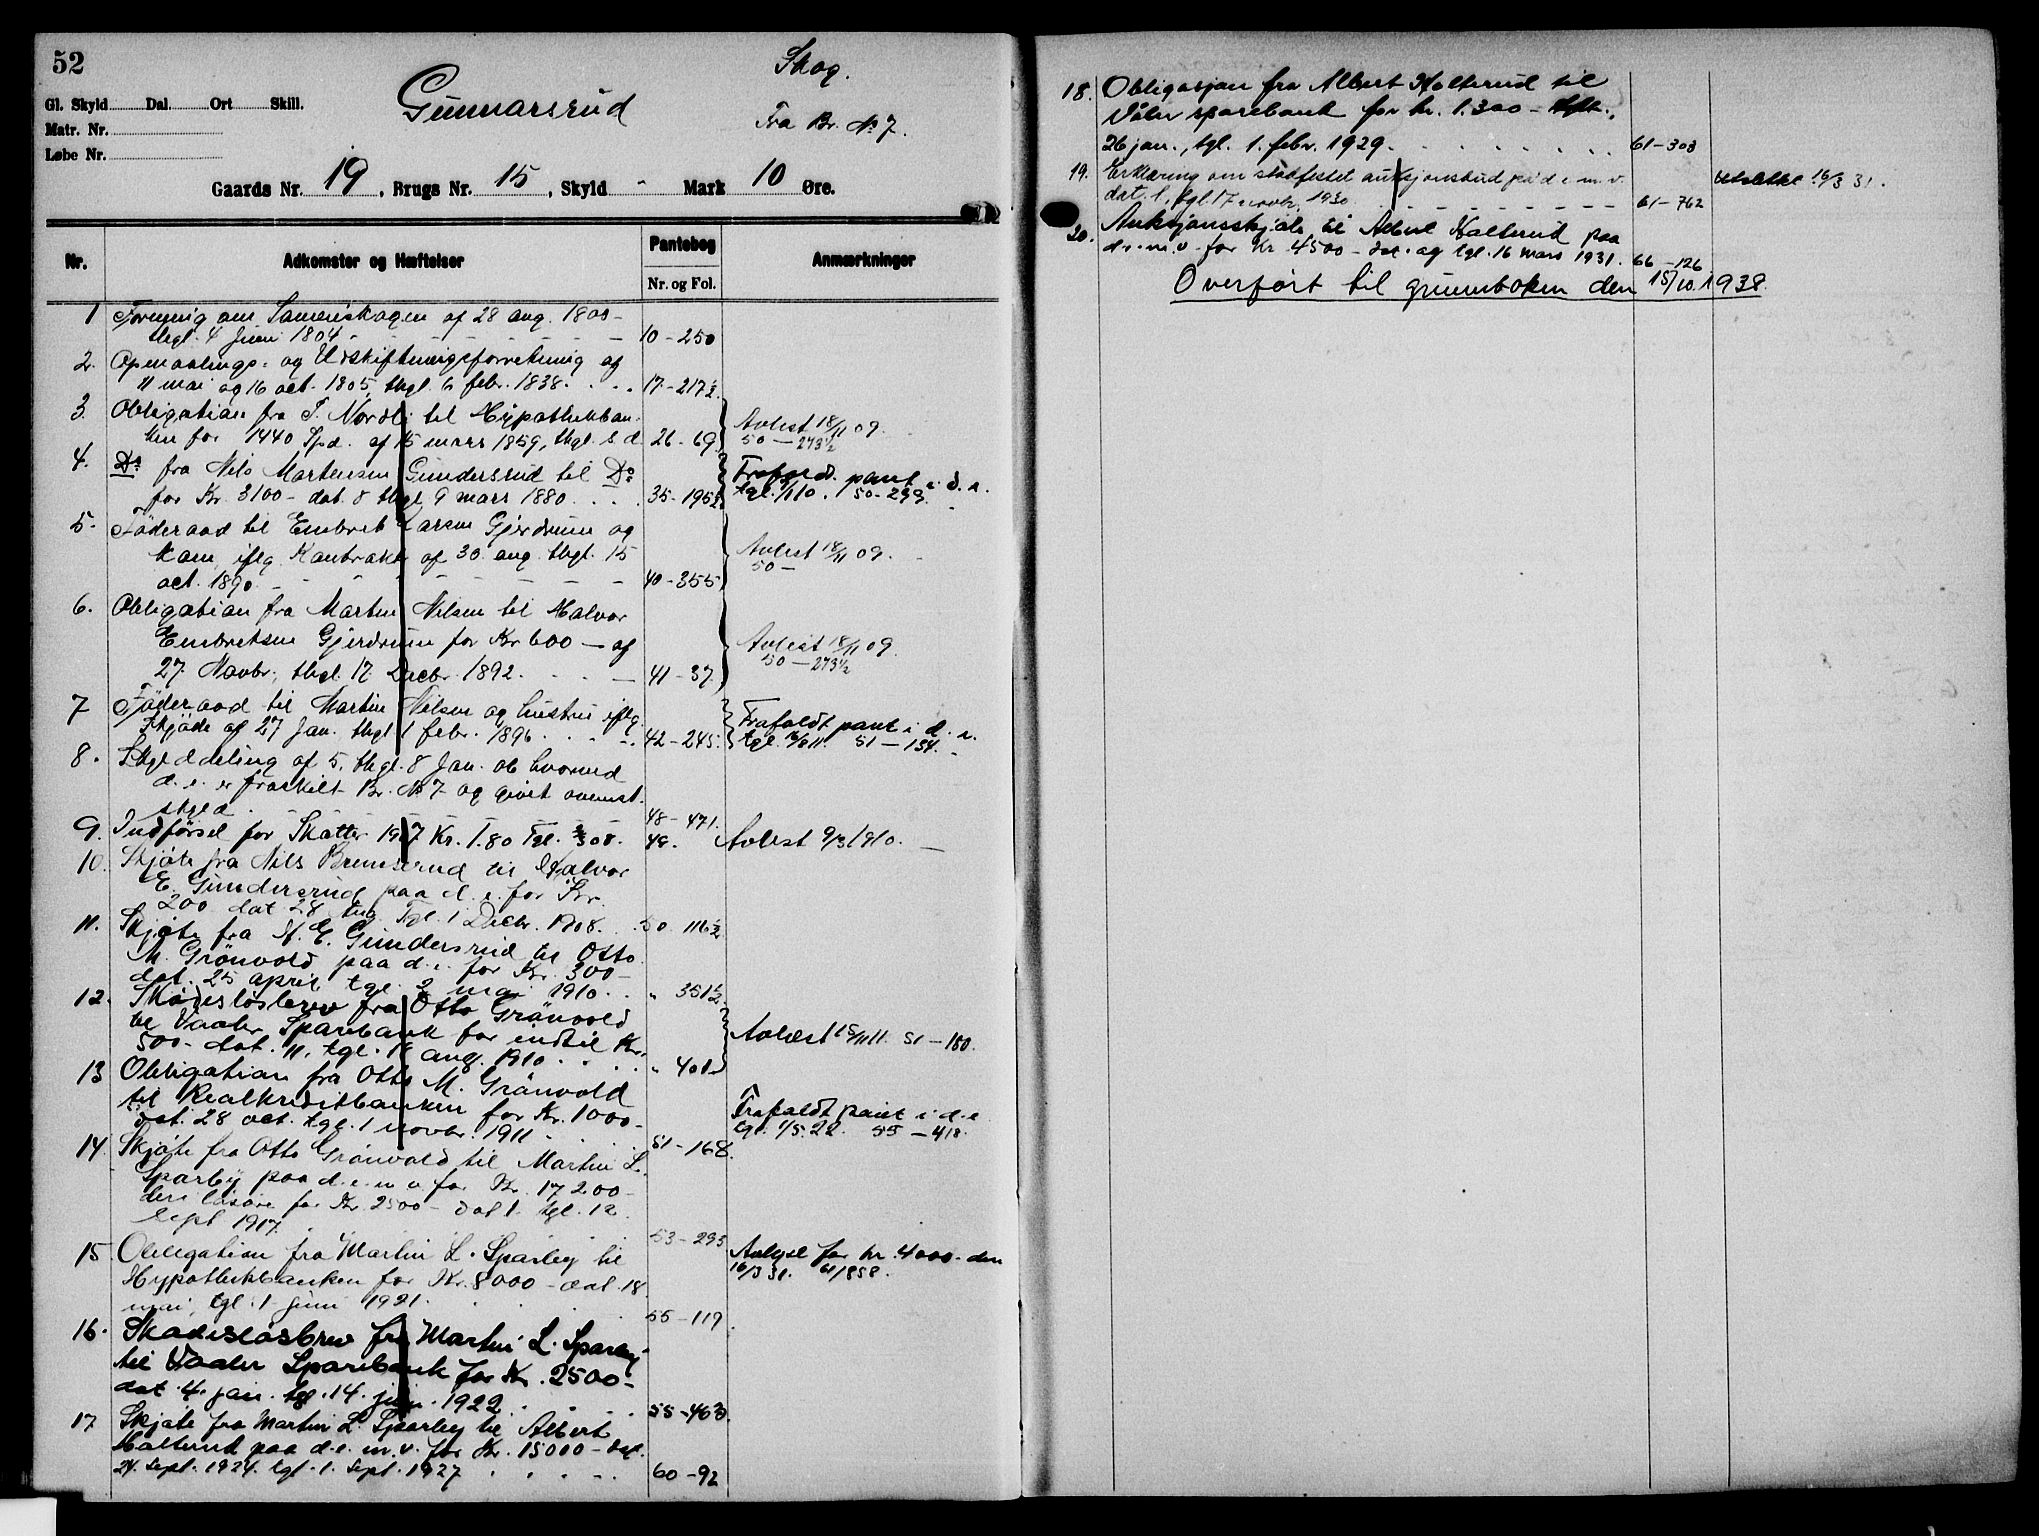 52
Gl. Skyld Dal. Ort Skill.
Matr. Nr.
Løbe Nr.
Gunnarsrud
Skog.
Fra Br. № 7.
Gaards Nr. 19, Brugs Nr. 15, Skyld " Mark 10 Øre.
Nr. Adkomster og Hæftelser Pantebog Anmærkninger
Nr. og Fol.
1 Forening om Sameieskogen af 28 aug. 1800 -
thgl. 4 Juni 1804 10-250
2. Opmaalings- og Udskiftningsforretning af
11 mai og 16 oct. 1805, thgl. 6 febr. 1838. 17-217½.
3. Obligation fra T. Nordli til Hypothekban-
ken for 1440 Spd. af 15 mars 1859, thgl. s. d. 26-69. Avlest 18/11 09.
50-273½
4. Do fra Nils Martensen Gundersrud til Do
for Kr. 3100 - dat. 8 thgl. 9 mars 1880. 35-195½ Frafaldt pant i d. e.
50-299
5. Föderaad til Embret Larsen Gjerdrum og
kone iflg. Kontrakt af 30. aug. thgl. 15
oct. 1890. 40-355 Avlest 18/11 09.
50-
6. Obligation fra Martin Nilsen til Halvor
Embretsen Gjerdrum for Kr 600 - af
27 Novbr., thgl. 17 Decbr. 1892. 41-37 Avlest 18/11 09.
50-273½
7 Föderaad til Martin Nilsen og hustru iflg.
Skjöde af 27 Jan. thgl. 1 febr. 1896. 42-245. Frafaldt pant i d. e.
51-154.
8. Skylddeling af 5. thgl. 8 Jan. 06 hvorved
d. e. er fraskilt Br. № 7 og givet ovenst.
skyld. 48-471.
9. Indförsel for Skatter 1907 Kr. 1.80 Tgl. 08. 49. Avlest 9/3 1910.
10. Skjöte fra Nils Bremserud til Halvor
E. Gundersrud paa d. e. for Kr.
200 dat 28 Aug. Tgl. 1 Decbr. 1908. 50 116½
11. Skjöte fra H. E. Gundersrud til Otto
M. Grönvold paa d. e. for Kr. 300 -
dat. 25 april tgl. 2 mai 1910. " 351½
12. Skadeslösbrev fra Otto Grönvold
til Vaaler Sparebank for indtil Kr.
500 - dat. 11. tgl. 18 aug. 1910. " 401 Avlæst 15/11 11. 51-180.
13 Obligation fra Otto M. Grönvold
til Realkreditbanken for Kr. 1000 -
dat. 28 oct. tgl. 1 novbr. 1911 51-168. Frafaldt pant i d. e
tgl. 1/5. 22. 55-418.
14. Skjöte fra Otto Grönvold til Martin L.
Sparby paa d. e. m. v. for Kr. 17200 -
lösöre for Kr. 2500 - dat 1. tgl. 12
Sept 1917. 53-293
15 Obligation fra Martin L. Sparby til
Hypothekbanken for Kr. 8000 - dat. 18
mai, tgl. 1 juni 1921. 55-119. Avlyst for kr. 4000 - den
16/3 31. 61/858.
16. Skadeslösbrev fra Martin L. Sparby
til Vaaler Sparebank for Kr. 2500 -
dat. 4. jan. tgl. 14. 1922 55-463.
17 Skjöte fra Martin L. Sparby til Albert
Halterud paa d. e. m. v. for Kr. 15000 - dat.
24. sept. 1924. tgl. 1. sept. 1927 60-92
18. Obligasjon fra Albert Holterud til
Våler sparebank for kr. 1.300 -
26 jan., tgl. 1. febr. 1929. 61-303
19. Erklæring om stadfestet auksjonsbud på d. e. m. v.
dat. 1, tgl. 17 novbr. 1930. 61-762 Utslettet 16/3 31.
20. Auksjonsskjöte til Albert Halterud paa
d. e. m. v. for Kr 4500 - dat. og tgl. 16 mars 1931. 66-126
Overført til grunnboken den 15/10. 1938.